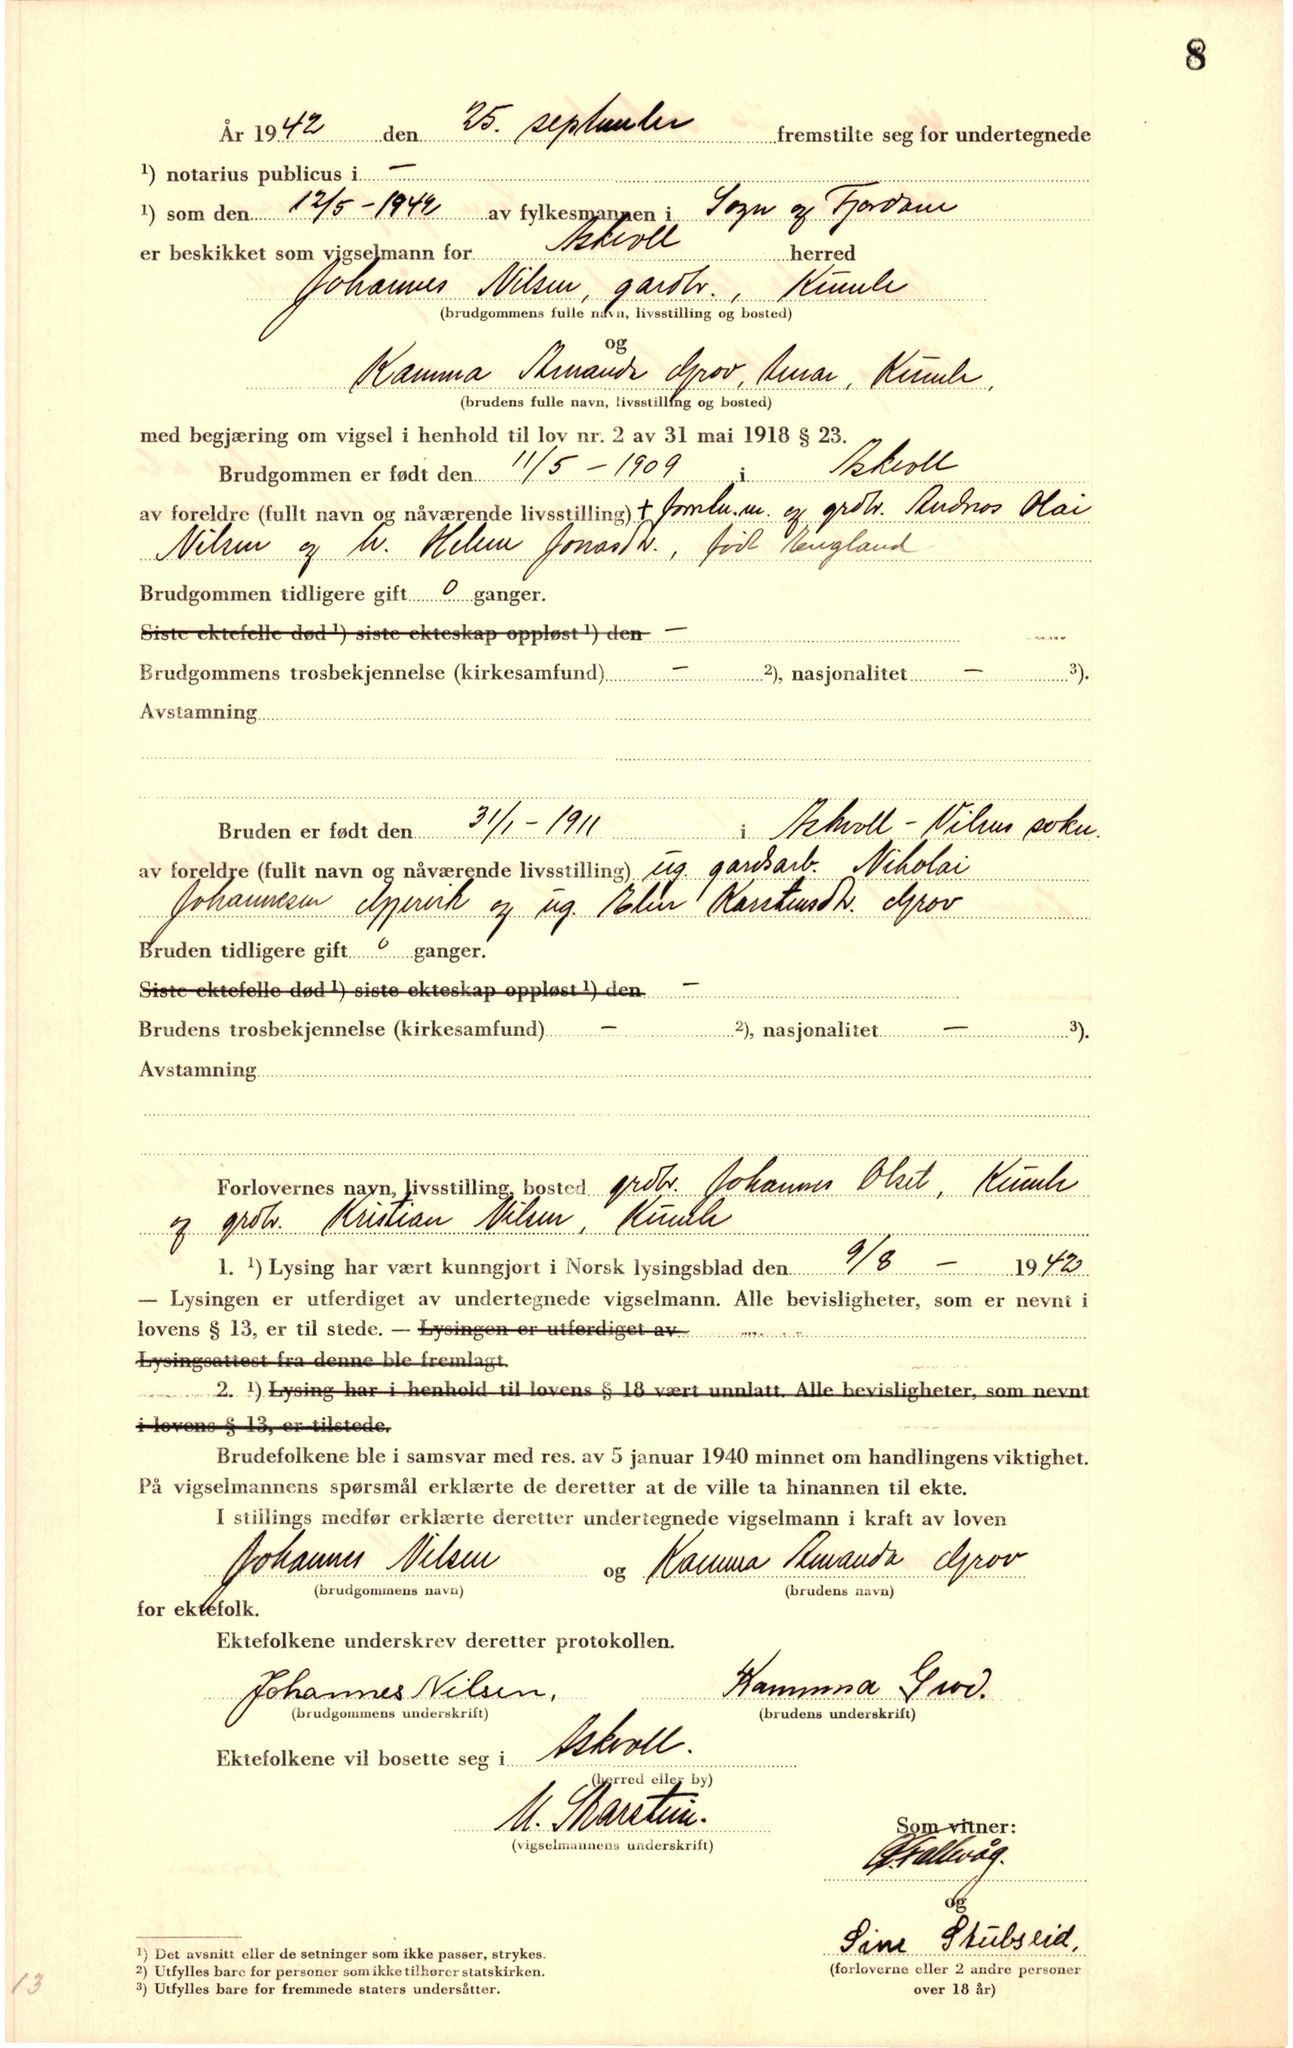 8
År 1942 den 25. september fremstilte seg for undertegnede
¹) notarius publicus i —
¹) som den 12/5 - 1942 av fylkesmannen i Sogn og Fjordane
er beskikket som vigselmann for Askvoll herred
Johannes Nilsen, gardbr., Kumle
(brudgommens fulle navn, livsstilling og bosted)
og
Kamma Amanda Grov, Kumle,
(brudens fulle navn, livsstilling og bosted)
med begjæring om vigsel i henhold til lov nr. 2 av 31 mai 1918 § 23.
Brudgommen er født den 11/5 - 1909 i Askvoll
av foreldre (fullt navn og nåværende livsstilling) + og grdbr. Andreas Olai
Nilsen og h. Helene Jonasdtr., født England
Brudgommen tidligere gift 0 ganger.
Siste ektefelle død ¹) siste ekteskap oppløst ¹) den —
Brudgommens trosbekjennelse (kirkesamfund) — ²), nasjonalitet — ³).
Avstamning
Bruden er født den 31/1 - 1911 i Askvoll - Vilnes sokn.
av foreldre (fullt navn og nåværende livsstilling) ug. gardsarb. Nikolai
Johannesen Gjervik og ug. Elen Karstensdtr. Grov
Bruden tidligere gift 0 ganger.
Siste ektefelle død ¹) siste ekteskap oppløst ¹) den —
Brudens trosbekjennelse (kirkesamfund) — ²), nasjonalitet — ³).
Avstamning
Forlovernes navn, livsstilling, bosted grdbr. Johannes Olset, Kumle
og grdbr. Kristian Nilsen, Kumle
1. ¹) Lysing har vært kunngjort i Norsk lysingsblad den 9/8 — 1942
— Lysingen er utferdiget av undertegnede vigselmann. Alle bevisligheter, som er nevnt i
lovens § 13, er til stede. — Lysingen er utferdiget av
Lysingsattest fra denne ble fremlagt.
2. ¹) Lysing har i henhold til lovens § 18 vært unnlatt. Alle bevisligheter, som nevnt
i lovens § 13, er tilstede.
Brudefolkene ble i samsvar med res. av 5 januar 1940 minnet om handlingens viktighet.
På vigselmannens spørsmål erklærte de deretter at de ville ta hinannen til ekte.
I stillings medfør erklærte deretter undertegnede vigselmann i kraft av loven
Johannes Nilsen og Kamma Amanda Grov
(brudgommens navn) (brudens navn)
for ektefolk.
Ektefolkene underskrev deretter protokollen.
Johannes Nilsen. Kamma Grov.
(brudgommens underskrift) (brudens underskrift)
Ektefolkene vil bosette seg i Askvoll.
(herred eller by)
M. Marstein.
(vigselmannens underskrift)
Som vitner:
og
Sine Stubseid.
(forloverne eller 2 andre personer
over 18 år)
¹) Det avsnitt eller de setninger som ikke passer, strykes.
²) Utfylles bare for personer som ikke tilhører statskirken.
³) Utfylles bare for fremmede staters undersåtter.
13